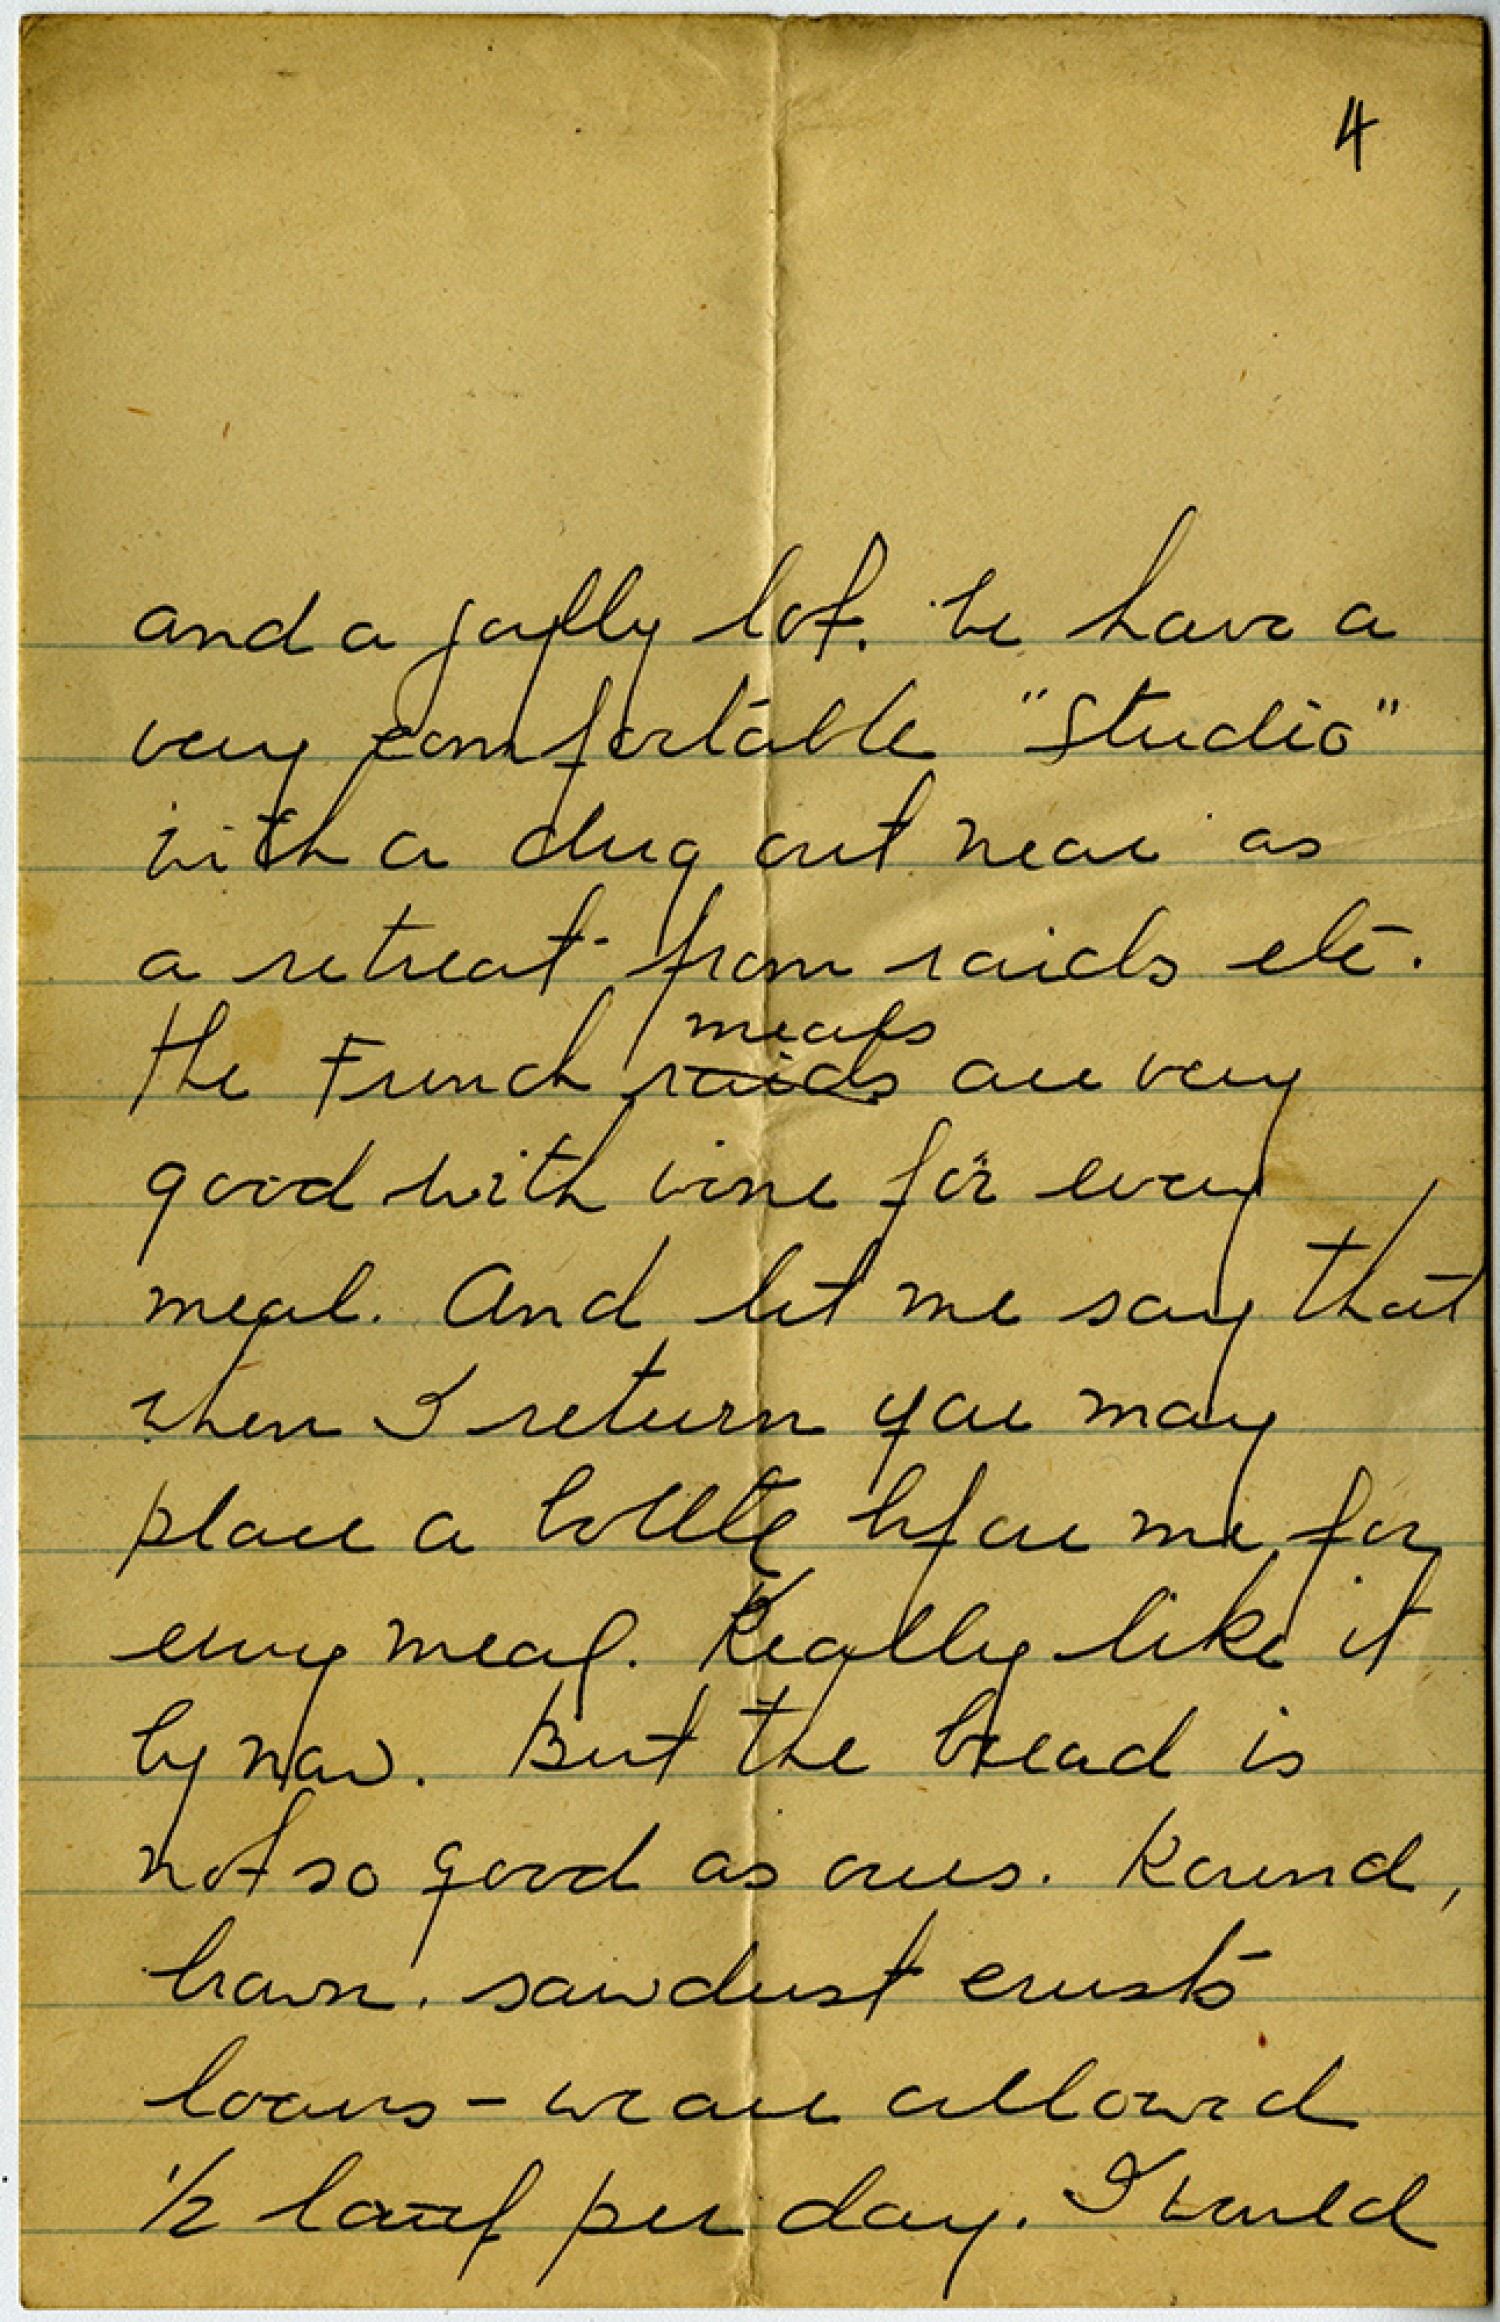 4
and a jolly lot. We have a
very comfortable "Studio"
with a dug out near as
a retreat from raids etc.
meals
The French raids are very
good with wine for every
meal. And let me say that
when I return you may
place a bottle before me for
every meal. Really like it
by now. But the bread is
not so good as ours. Round,
brown. sawdust crusts
loaves - we are allowed
1/2 loaf per day. I would